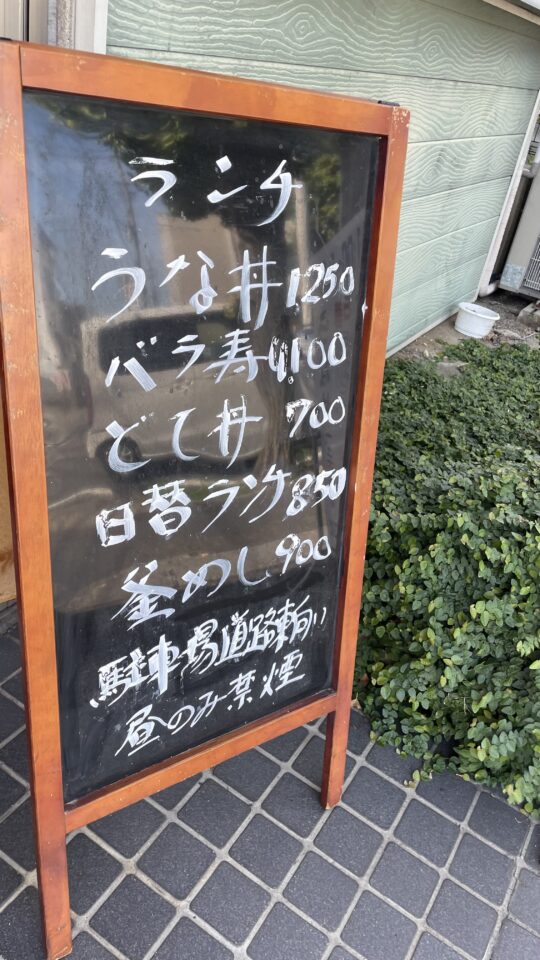 ランチ
うな丼1250
バラ寿し1100
どて丼 700
日替ランチ850
釜めし900
駐車場道路東向い
昼のみ禁煙